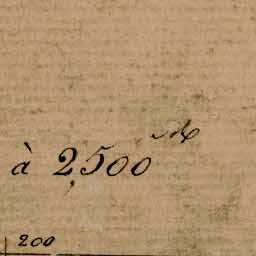 à 2500
200